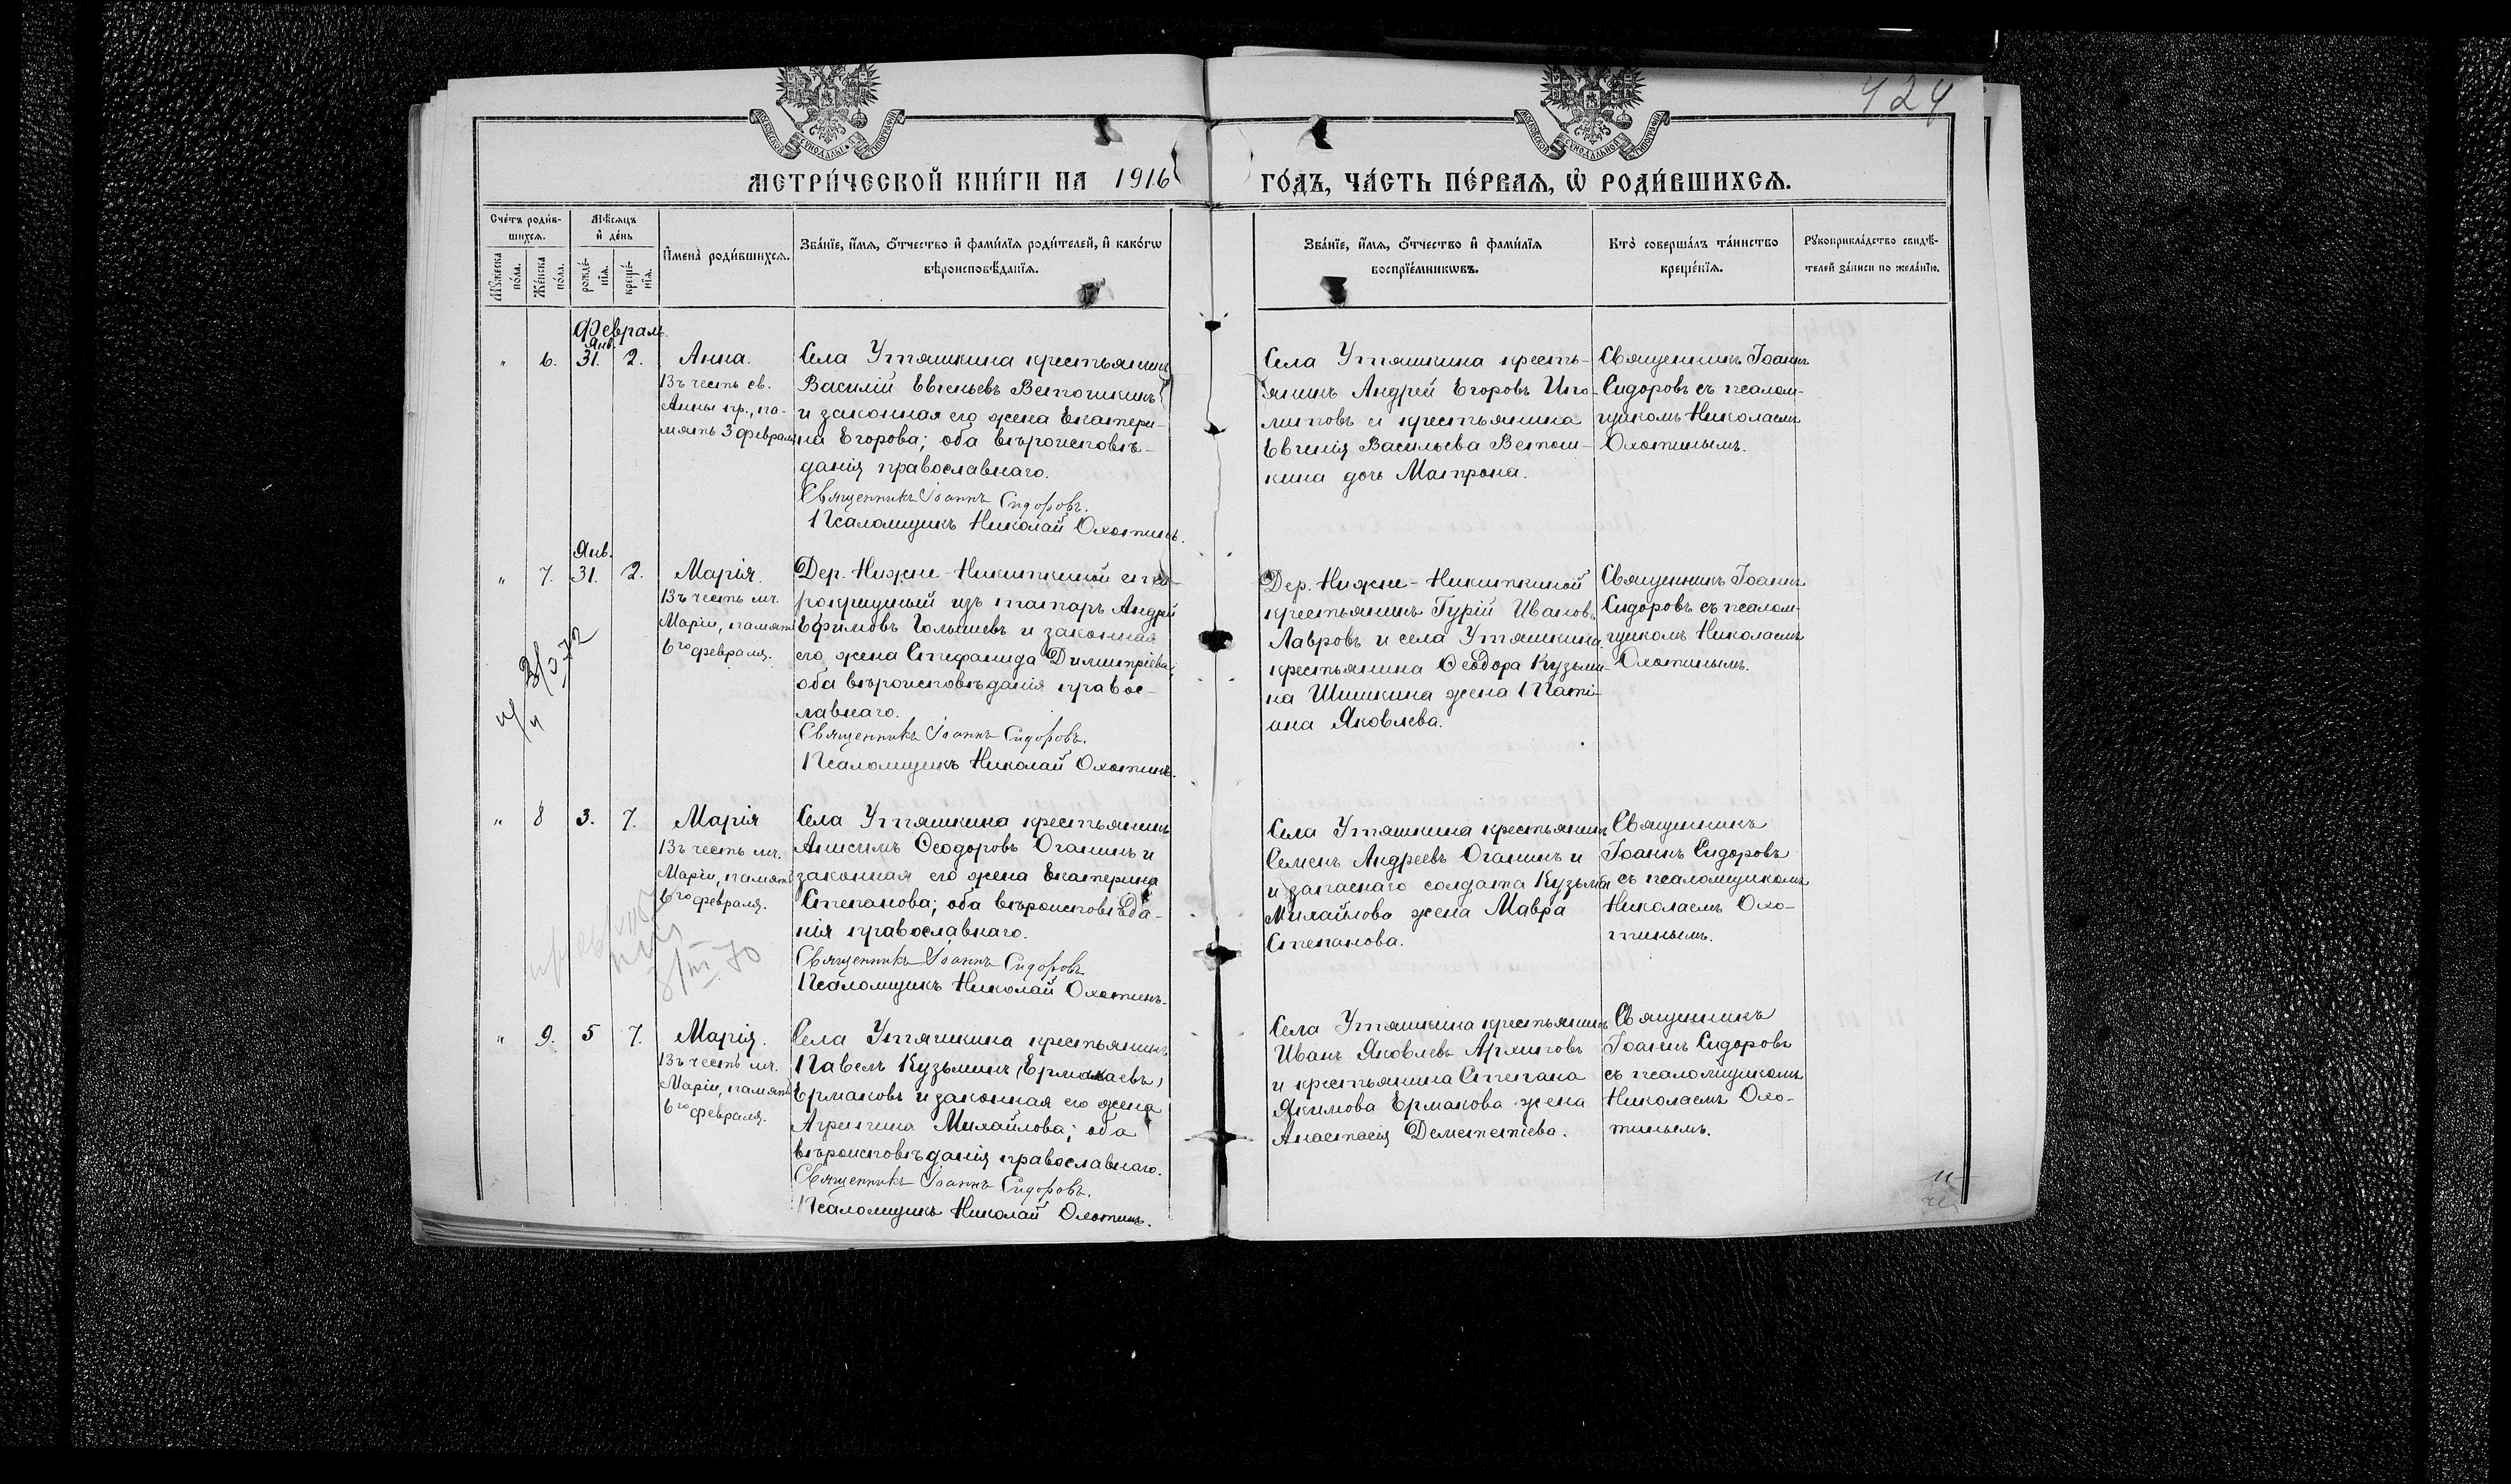 424
МЕТРИ́ЧЕСКОЙ КНИ́ГИ НА 1916 ГО́ДЪ, ЧА́СТЬ ПЕ́РВАЯ, Ѡ РОДИ́ВШИХСЯ.
Сче́тъ роди́в-
шихся.
Мѣ́сяцъ
и де́нь
Мꙋ́жеска
по́ла.
Же́нска
по́ла.
рожде́-
нїя.
креще́-
нїя.
Имена̀ роди́вшихся.
Зва́нїе, и́мя, о́тчество и фами́лїя роди́телей, и како́гѡ
вѣроисповѣ́данїя.
Зва́нїе, и́мя, о́тчество и фами́лїя
воспрїе́мникѡвъ.
Кто̀ соверша́лъ та́инство
креще́нїя.
Рꙋкоприкла́дство свидѣ́-
телей за́писи по жела́нїю.
Феврал.
Янв.
" 6. 31. 2.
Анна.
Въ честь св.
Анны пр., па-
мять 3 февраля
Села Утяшкина крестьянин
Василій Евгеньевъ Ветошкинъ
и законная его жена Екатери-
на Егорова; оба вѣроисповѣ-
данія православнаго.
Священникъ Іоаннъ Сидоровъ.
Псаломщикъ Николай Охотинъ.
Села Утяшкина кресть-
янинъ Андрей Егоровъ Ипо-
литовъ и крестьянина
Евгенія Васильева Ветош-
кина дочь Матрона.
Священникъ Іоаннъ
Сидоровъ съ псалом-
щикомъ Николаемъ
Охотинымъ.
Янв.
" 7. 31. 2.
Марія.
Въ честь мч.
Маріи, память
6го февраля.
Дер. Нижне-Никиткиной
рокрещеный изъ татаръ Андрей
Ефимовъ Голышевъ и законная
его жена Стефанида Димитріева;
оба вѣроисповѣданія правос-
лавнаго.
Священникъ Іоаннъ Сидоровъ.
Псаломщикъ Николай Охотинъ.
Дер. Нижне-Никиткиной
крестьянинъ Гурій Ивановъ
Лавровъ и села Утяшкина
крестьянина Ѳеодора Кузьми-
на Шишкина жена Тати-
ана Яковлева.
Священникъ Іоаннъ
Сидоровъ съ псалом-
щикомъ Николаемъ
Охотинымъ.
" 8 3. 7.
Марія
Въ честь мч.
Маріи, память
6го февраля.
Села Утяшкина крестьянинъ
Анисимъ Ѳеодоровъ Оганинъ и
законная его жена Екатерина
Степанова; оба вѣроисповѣда-
нія православнаго.
Священникъ Іоаннъ Сидоровъ
Псаломщикъ Николай Охотинъ.
Села Утяшкина крестьянин
Семенъ Андреевъ Оганинъ и
и запаснаго солдата Кузьма
Михайлова жена Мавра
Степанова.
Священникъ
Іоаннъ Сидоровъ
съ псаломщикомъ
Николаемъ Охо-
тинымъ.
" 9. 5 7.
Марія.
Въ честь мч.
Маріи, память
6го февраля.
Села Утяшкина крестьянинъ
Павелъ Кузьминъ (Ермолаевъ)
Ермаковъ и законная его жена
Агрипина Михайлова; оба
вѣроисповѣданія православнаго.
Священникъ Іоаннъ Сидоровъ.
Псаломщикъ Николай Охотинъ.
Села Утяшкина крестьянинъ
Иванъ Яковлевъ Архиповъ
и крестьянина Степана
Якимова Ермакова жена
Анастасія Дементіева.
Священникъ
Іоаннъ Сидоровъ
съ псаломщикомъ
Николаемъ Охо-
тинымъ.